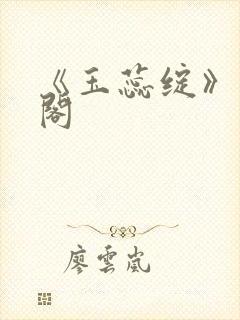 《玉蕊绽》
閣
廖雲嵐